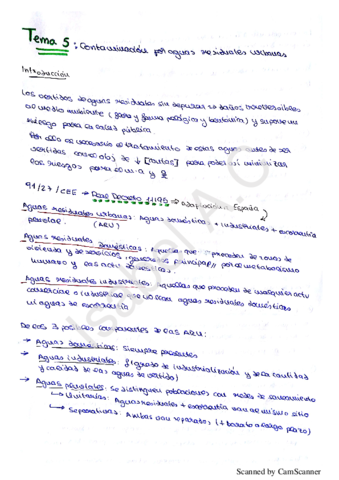 Tema 5: Contaminación por aguas residuales urbanas
Introducción
Los vertidos de aguas residuales sin depurar → daños irreversibles
al medio ambiente (fauna y flora y ) y supone un
riesgo para la salud pública.
Por ello es necesario el tratamiento de estas aguas antes de ser
vertidas con el obj de ↓ [ ] para poder así minimizar
los riesgos para el m.a y
91/271/CEE → Real Decreto 11/95 → Adaptación España
Aguas residuales urbanas: Aguas domésticas + industriales + escorrentía
pluvial. (ARU)
Aguas residuales domésticas: Aquellas que proceden de zonas de
vivienda y de servicios, generadas principal/ por el metabolismo
humano y las activ domésticas.
Aguas residuales industriales: Aquellas que proceden de cualquier activ
comercial o industrial que no sean aguas residuales domésticas
ni aguas de escorrentía
De los 3 posibles componentes de las ARU:
→ Aguas domésticas: siempre presentes
→ Aguas industriales: f(grado de industrialización y de la cantidad
y calidad de las aguas de vertido)
→ Aguas pluviales: Se distinguen poblaciones con redes de saneamiento
→ Unitarias: Aguas residuales + escorrentía van al mismo sitio
→ Separativas: Ambas van separadas, (+ barato a largo plazo)
Scanned by CamScanner